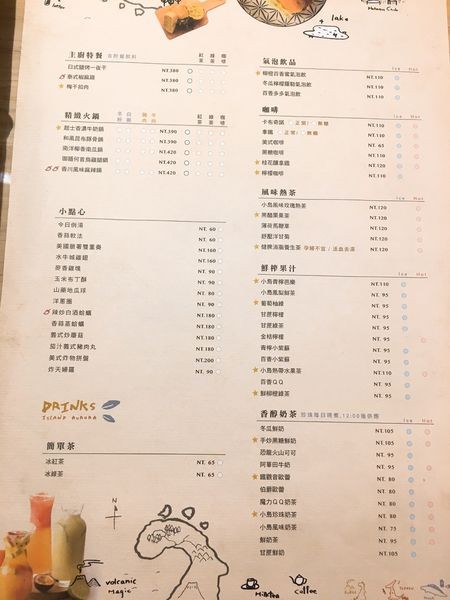 lake
主廚特餐 含附餐飲料
紅茶 綠茶 咖啡
日式鹽烤一夜干 NT.380
泰式椒麻雞 NT.380
梅干扣肉 NT.380
精緻火鍋
白飯 豬肉 牛肉 紅茶 綠茶 咖啡
起士香濃牛奶鍋 NT.390
和風昆布豚骨鍋 NT.390
南洋椰香南瓜鍋 NT.420
御膳何首烏雞腿鍋 NT.420
香川風味麻辣鍋 NT.420
小點心
今日例湯 NT. 60
香蒜軟法 NT. 60
美國脆薯雙重奏 NT. 60
水牛城雞翅 NT. 90
麥香雞塊 NT. 90
玉米布丁酥 NT. 90
山藥地瓜球 NT. 80
洋蔥圈 NT. 90
辣炒白酒蛤蠣 NT.180
香蒜蒸蛤蠣 NT.180
義式炒蘑菇 NT.180
茄汁義式豬肉丸 NT.180
美式炸物拼盤 NT.200
炸天婦羅 NT. 90
DRINKS
ISLAND AURORA
簡單茶
冰紅茶 NT. 65
冰綠茶 NT. 65
N
volcanic
Magic
氣泡飲品
Ice Hot
柳橙百香蜜氣泡飲 NT.110
冬瓜檸檬羅勒氣泡飲 NT.110
百香多多氣泡飲 NT.110
咖啡
Ice Hot
卡布奇諾 正常 無糖 NT.110
拿鐵 正常 無糖 NT.110
美式咖啡 NT. 65
黑糖咖啡 NT.110
桂花釀拿鐵 NT.110
檸檬咖啡 NT.110
風味熱茶
Ice Hot
小島風味玫瑰熱茶 NT.120
黑醋栗果茶 NT.120
薄荷馬鞭草 NT.120
舒壓洋甘菊 NT.120
健脾消脂養生茶 孕婦不宜 / 活血去濕 NT.120
鮮榨果汁
Ice Hot
小島青檸芭樂 NT.110
小島鳳梨鮮茶 NT. 95
葡萄柚綠 NT. 95
甘蔗檸檬 NT. 95
甘蔗綠茶 NT. 95
金桔檸檬 NT. 95
青檸小紫蘇 NT. 95
百香小紫蘇 NT. 95
小島熱帶水果茶 NT.110
百香QQ NT. 95
鮮柳橙綠茶 NT. 95
香醇奶茶 珍珠每日現煮,12:00後供應
Ice Hot
冬瓜鮮奶 NT.105
手炒黑糖鮮奶 NT. 95
恐龍火山可可 NT. 95
阿華田牛奶 NT. 95
鐵觀音歐蕾 NT. 80
伯爵歐蕾 NT. 80
魔力QQ奶茶 NT. 80
小島珍珠奶茶 NT. 80
小島風味奶茶 NT. 75
鮮奶茶 NT. 95
甘蔗鮮奶 NT.105
Milktea
Coffee